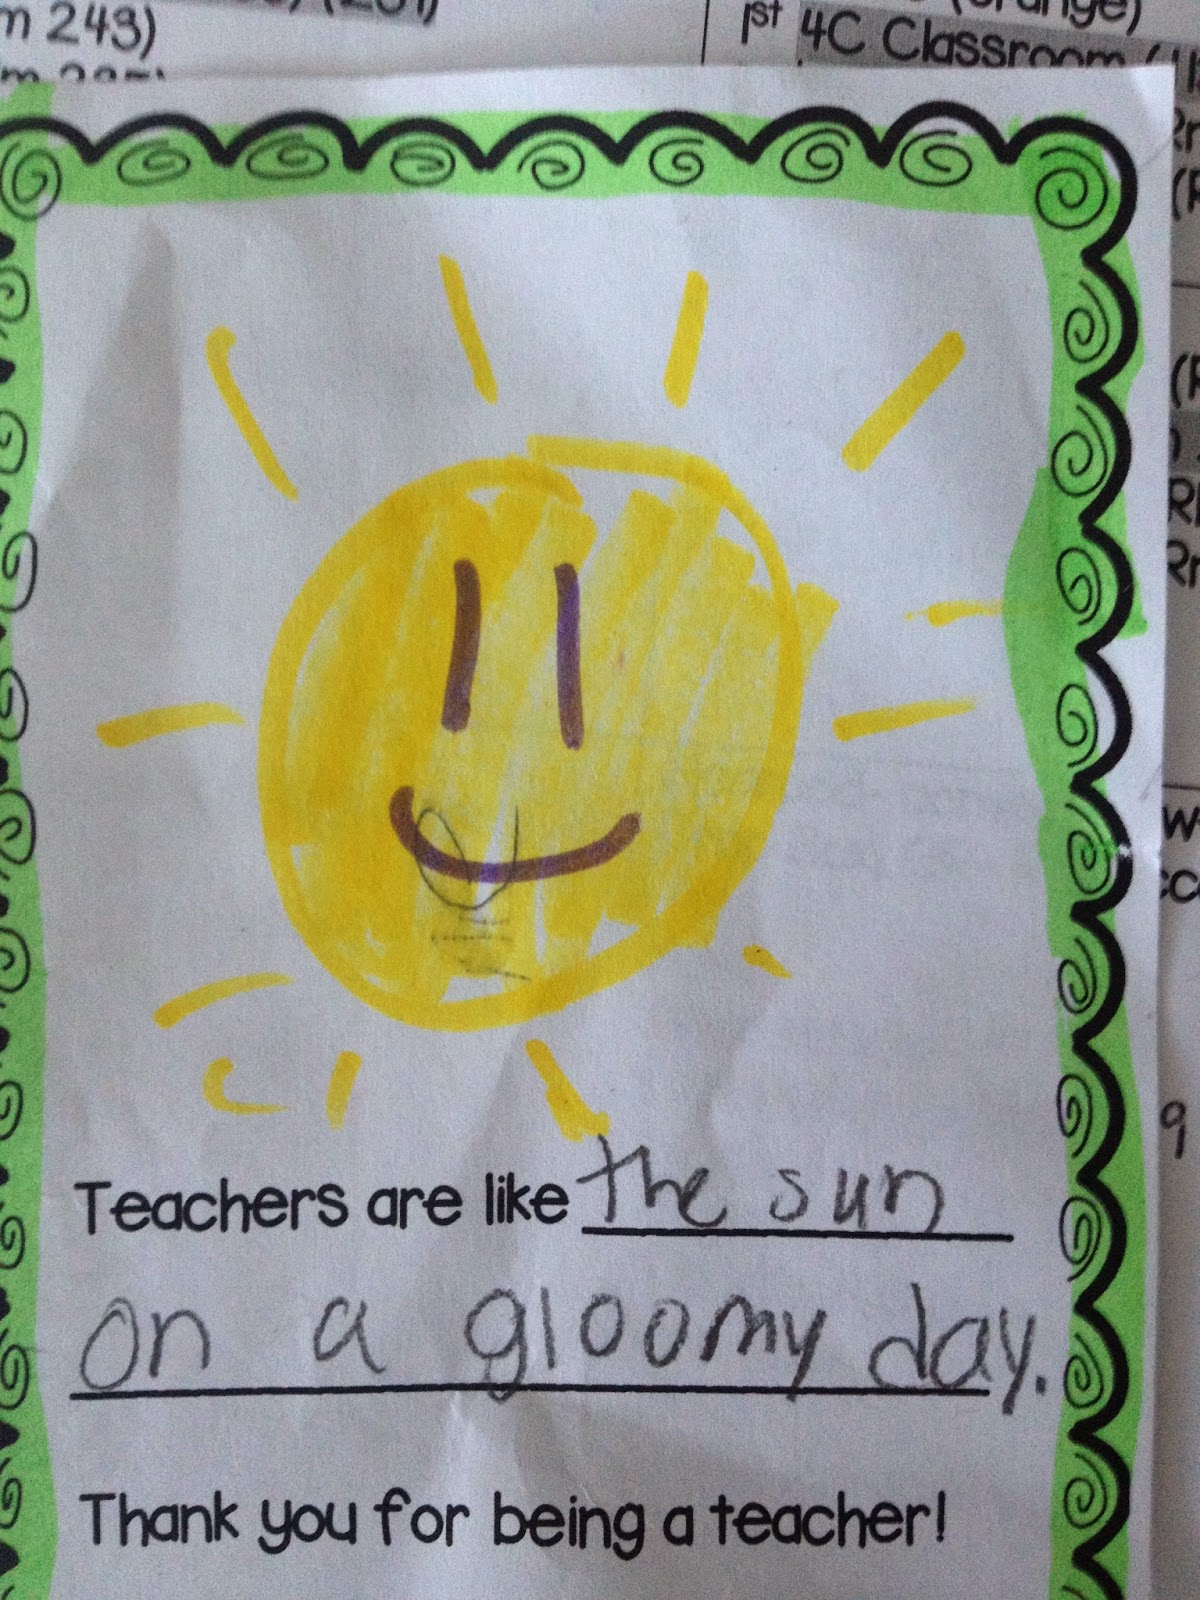 m 243)
1st 4C Classroom
Teachers are like the sun
on a gloomy day.
Thank you for being a teacher!
9